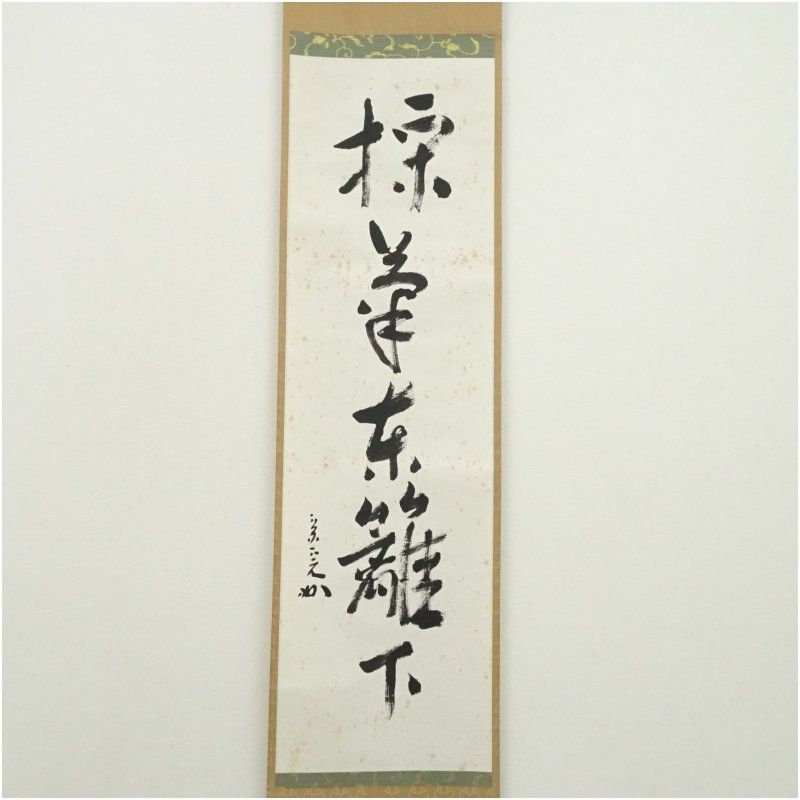 採菊東籬下